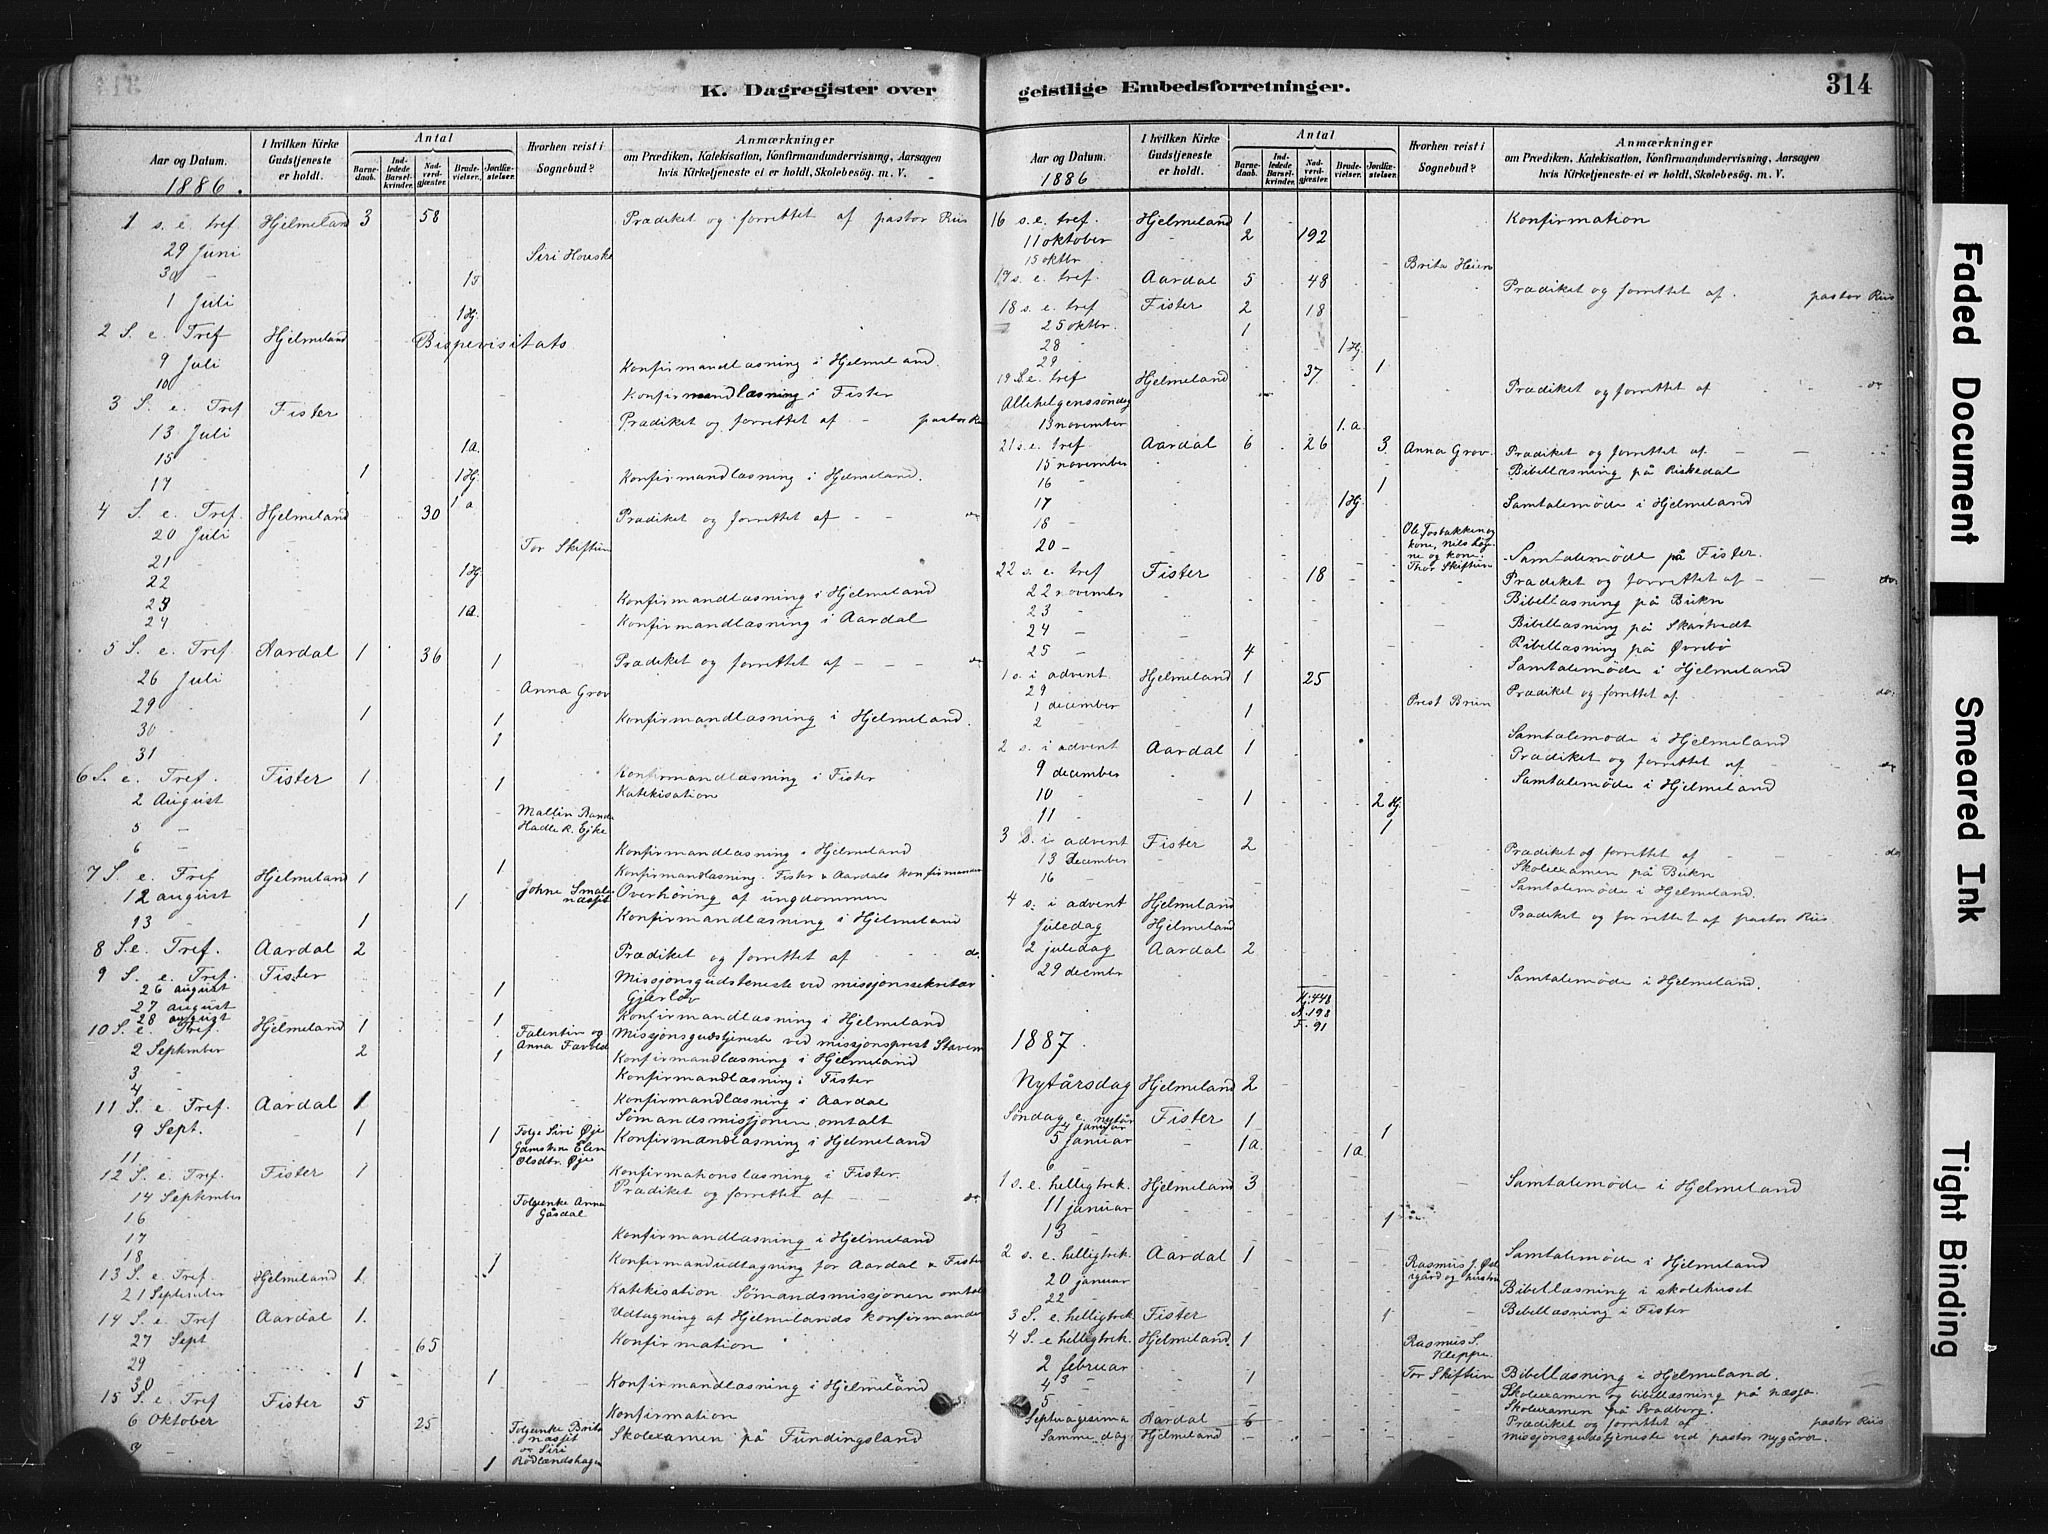 K. Dagregister over
Aar og Datum. I hvilken Kirke Gudstjeneste er holdt. Antal Barnedaab. Indledede Barselkvinder. Nadverdgjester. Brudevielser. Jordfæstelser. Hvorhen reist i Sognebud? Anmærkninger om Prædiken, Katekisation, Konfirmandundervisning, Aarsagen hvis Kirketjeneste ei er holdt, Skolebesøg. m. V.
1886.
1 s. e. tref. Hjelmeland 3 58 Prædiket og forrettet af pastor Riis
29 Juni Siri Houske
30 - 1 F
1 Juli 1 Hj.
2 S. e. Tref Hjelmeland Bispevisitats
9 Juli Konfirmandlæsning i Hjelmeland.
10 Konfirmandlæsning i Fister
3 S. e. Tref Fister Prædiket og forrettet af - pastor Riis
13 Juli 1 a.
15
17 1 1 Hj. Konfirmandlæsning i Hjelmeland.
4 S. e. Tref. Hjelmeland 30 1 a Prædiket og forrettet af - - do
20 Juli Tor Skiftun
21
22 1 Hj.
23 Konfirmandlæsning i Hjelmeland
24 1 a. Konfirmandlæsning i Aardal
5 S. e. Tref. Aardal 1 36 1 Prædiket og forrettet af - - - do
26 Juli Anna Grov
29
30 1 1 Konfirmandlæsning i Hjelmeland.
31 1
6 S. e. Tref. Fister 1 1 Konfirmandlæsning i Fister
2 August Katekisation
5 - Hadle R. Ejke
6 - Konfirmandlæsning i Hjelmeland
7 S. e. Tref Hjelmeland 1 1 Konfirmandlæsning. Fister & Aardals konfirmander
12 august 1 Overhøring af ungdommen
13 1 Konfirmandlæsning i Hjelmeland
8 S. e. Tref. Aardal 2 Prædiket og forrettet af - - - do.
9 S. e. Tref. Fister Missjonsgudstjeneste ved missjonssekretær
26 august 1 Gjerløv
27 august
28 august 1 Konfirmandlæsning i Hjelmeland
10 S. e. Tref Hjelmeland 1 Missjonsgudstjeneste ved missjonsprest Stavem
2 September 2 1 Konfirmandlæsning i Hjelmeland
3 Konfirmandlæsning i Fister
4 Konfirmandlæsning i Aardal
11 S. e. Tref. Aardal 1 Sømandsmissjonen omtalt
9 Sept. 1 1 Konfirmandlæsning i Hjelmeland
11
12 S. e. Tref. Fister 1 Konfirmationslæsning i Fister.
14 September Prædiket og forrettet af - - do
16 Folgenke Anna Gåsdal
17 Konfirmandlæsning i Hjelmeland
18 1 Konfirmandudtagning for Aardal & Fister
13 S. e. Tref. Hjelmeland 1. Katekisation Sømandsmissjonen omtalt
21 September Udtagning af Hjelmelands konfirmander
14 S. e. Tref Aardal 1.
27 Sept 65 Konfirmation
29
30 1 1 Konfirmandlæsning i Hjelmeland
15 S. e. Tref Fister 5 Konfirmation
6 Oktober 25 Skolexamen på Fundingsland
9 1 Rödlandshagen
geistlige Embedsforretninger.
314
Aar og Datum. I hvilken Kirke Gudstjeneste er holdt. Antal Barnedaab. Indledede Barselkvinder. Nadverdgjester. Brudevielser. Jordfæstelser. Hvorhen reist i Sognebud? Anmærkninger om Prædiken, Katekisation, Konfirmandundervisning, Aarsagen hvis Kirketjeneste ei er holdt, Skolebesøg. m. V.
1886
16 s. e. tref. Hjelmeland 1 Konfirmation
11 oktober 2 192
15 oktbr Brita Heien
17 s. e. tref. Aardal 5 48 Prædiket og forrettet af pastor Riis
18 s. e. tref Fister 2 18
25 oktbr. 1
28 1 Hj.
29 1
19 S. e. tref Hjelmeland 37 Prædiket og forrettet af - - do
Allehelgenssöndag
13 november 1. a.
21 s. e. tref. Aardal 6 26 3 Anna Grov. Prædiket og forrettet af - -
15 november Bibellæsning på Riskedal
16 1
17 1 Hj. Samtalemöde i Hjelmeland
18
20 - Thor Skiftun Samtalemöde på Fister.
22 s. e. tref Fister 18 Prædiket og forrettet af - - do.
22 november Bibellæsning på Bukn
23 Bibellæsning på Skartvedt
24 Bibellæsning på Øvrebö
25 4 Samtalemöde i Hjelmeland
1 s. i advent Hjelmeland 1 25 Prædiket og forrettet af - - do.
29
1 december 1 Prest Brun
2 Samtalemöde i Hjelmeland
2 s. i advent Aardal 1 Prædiket og forrettet af - - do
9 december Samtalemöde i Hjelmeland
10 1 2 Hj.
11 1
3 s. i advent Fister 2 Prædiket og forrettet af - - do
13 December Skolexamen på Bukn
16 Samtalemöde i Hjelmeland.
4 s. i advent Hjelmeland Prædiket og forrettet af pastor Riis.
Juledag Hjelmeland
2 juledag Aardal 2
29 decembr Samtalemöde i Hjelmeland.
Hj. 448
A. 198
F. 91
1887.
Nytårsdag Hjelmeland 2
Söndag e. nytår Fister 1
4 januar 1
5 Januar 1 a 1 a
6
1 s. e. helligtrek. Hjelmeland 3 Samtalemöde i Hjelmeland
11 januar
13 - 1
2 s. e. helligtrek. Aardal 1 Samtalemöde i Hjelmeland
20 januar Bibellæsning i skolehuset
22
3 S. e. helligtrek Fister 1 Bibellæsning i Fister
4 S. e helligtrek. Hjelmeland 1 Rasmus S. Kleppe.
2 februar 1 Tor Skiftun Bibellæsning i Hjelmeland.
4 Skolexamen og bibellæsning på næsja.
5 Skolexamen på Svadberg.
Septuagesima Aardal 6 Prædiket og forrettet af pastor Riis
Samme dag Hjelmeland Missjonsgudstjeneste ved pastor Nygård.
Faded Document
Smeared Ink
Tight Binding